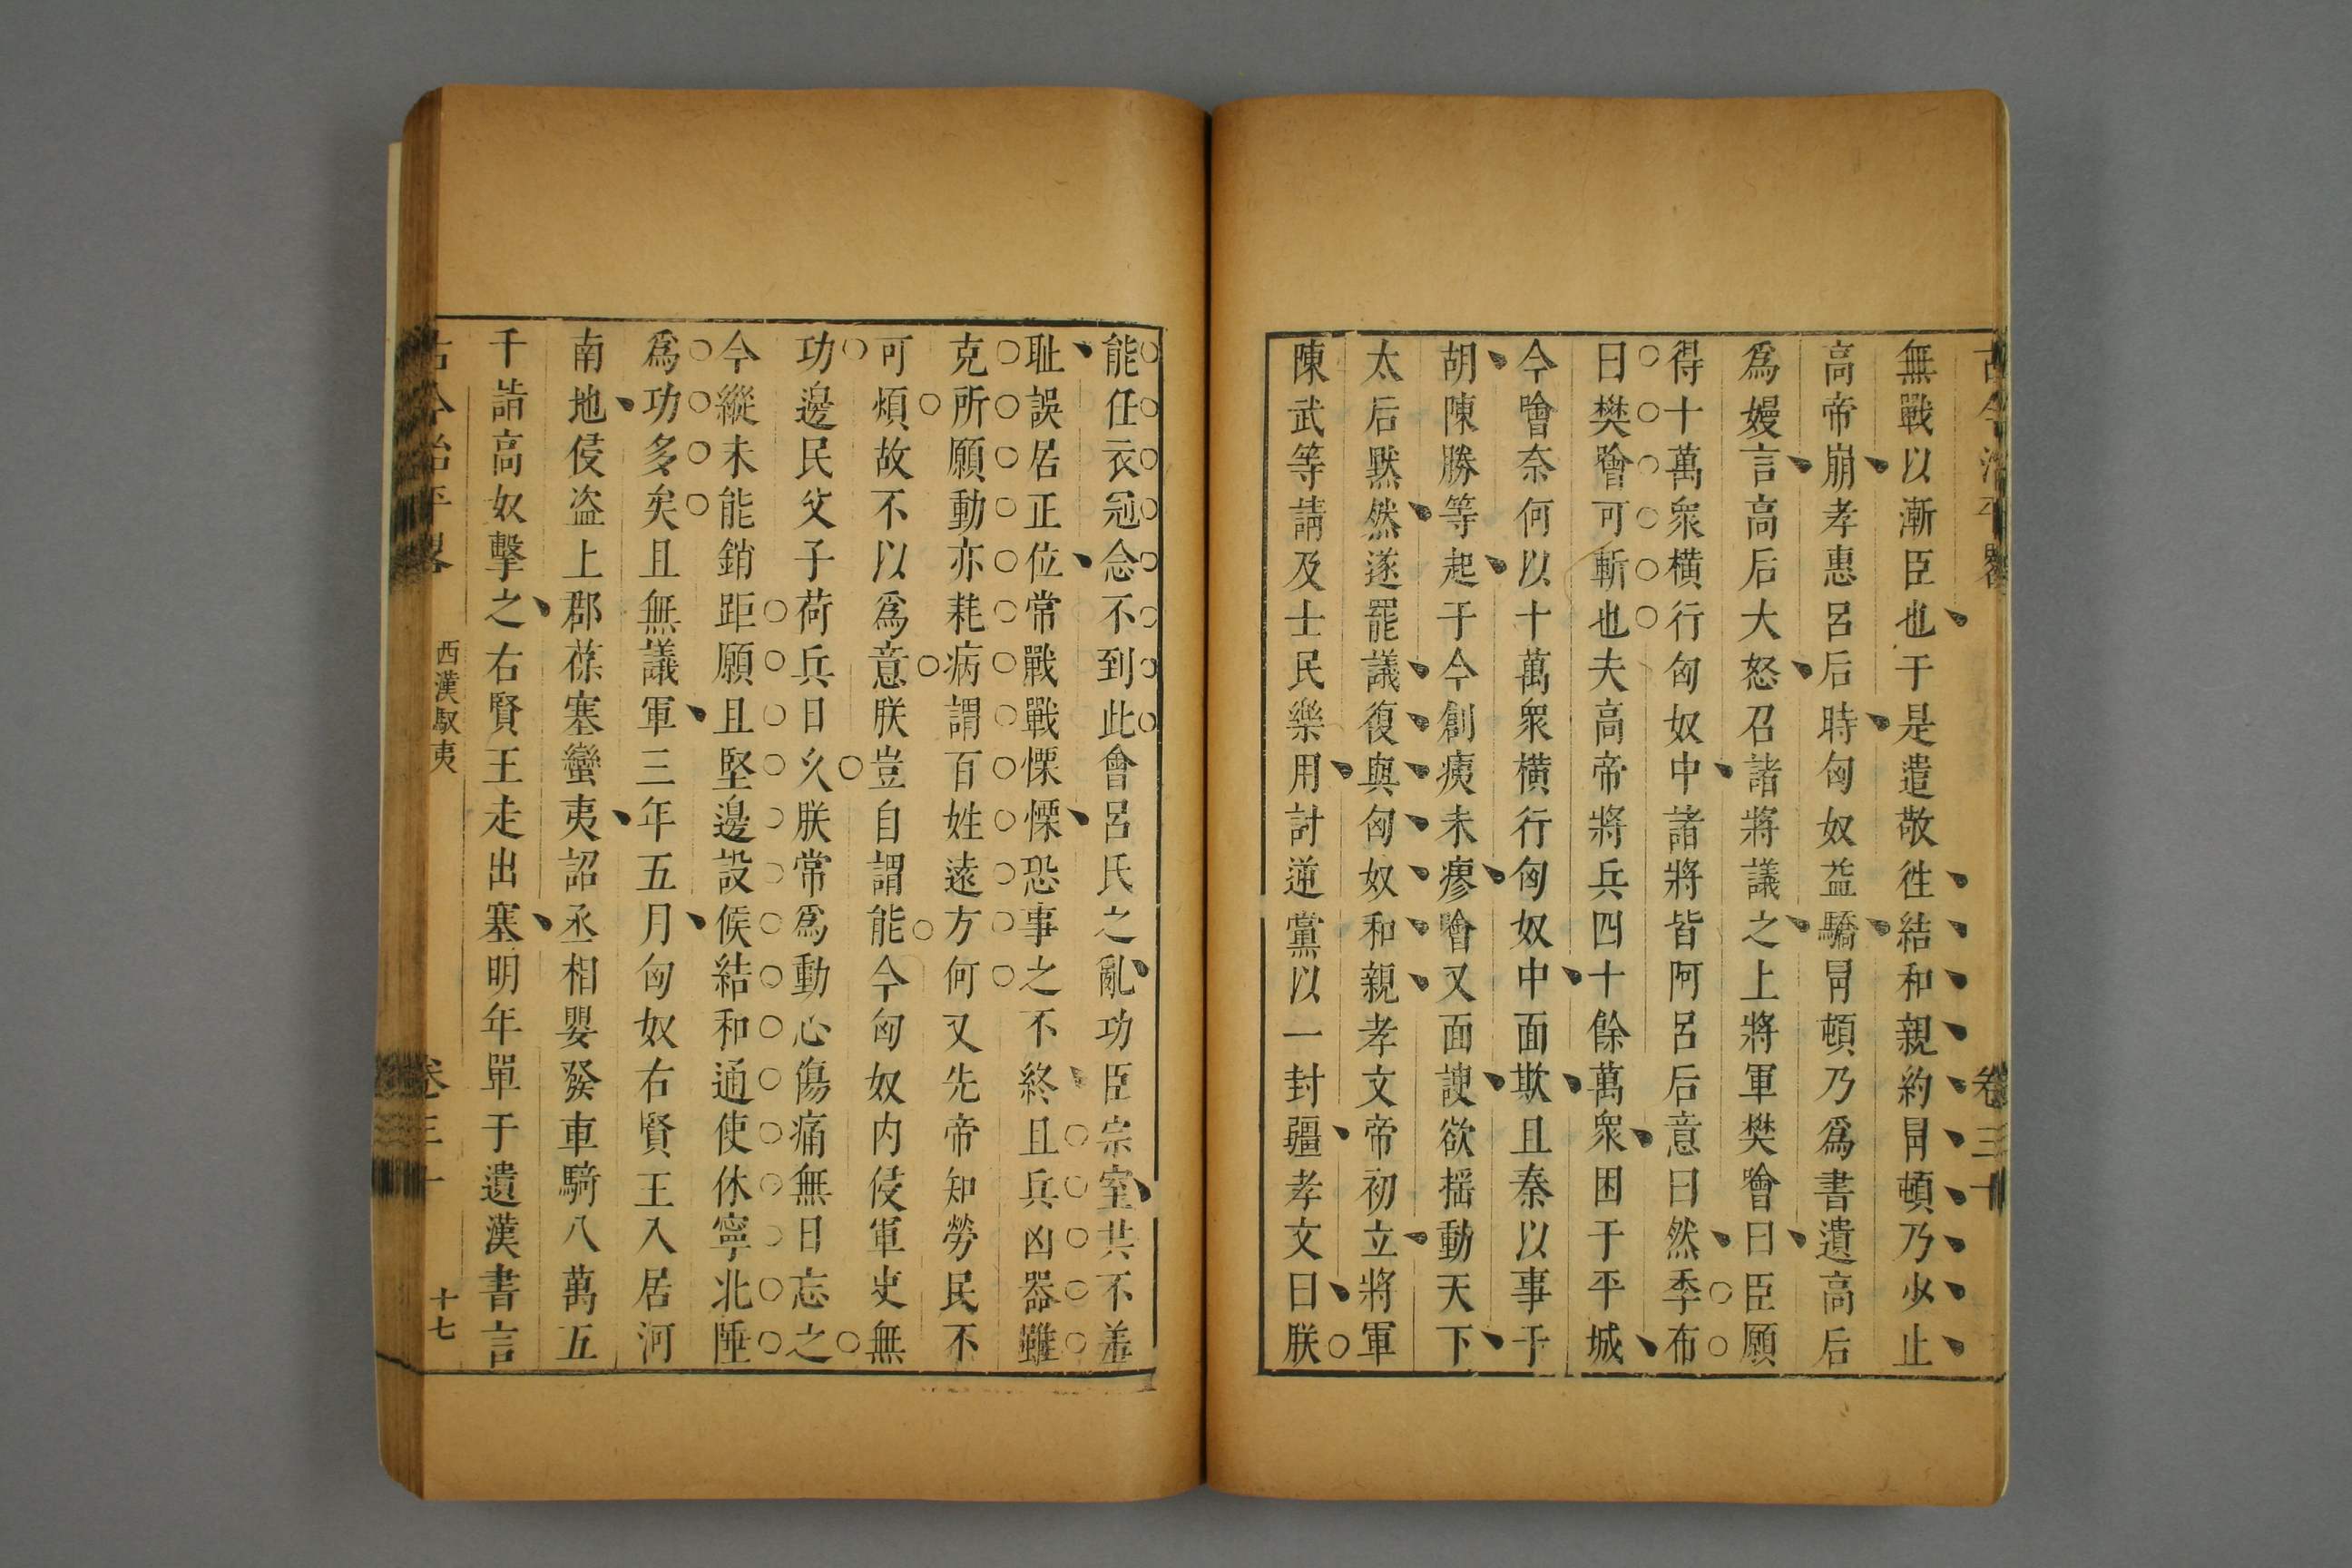 古今治平畧 卷三十
無戰以漸臣也于是遣敬徃結和親約冐頓乃少止
高帝崩孝惠呂后時匈奴益驕冐頓乃爲書遺高后
爲嫚言高后大怒召諸將議之上將軍樊噲曰臣願
得十萬衆横行匈奴中諸將皆阿呂后意曰然季布
曰樊噲可斬也夫高帝將兵四十餘萬衆困于平城
今噲奈何以十萬衆横行匈奴中面欺且秦以事于
胡陳勝等起于今創痍未瘳噲又面諛欲揺動天下
太后默然遂罷議復與匈奴和親孝文帝初立將軍
陳武等請及士民樂用討逆黨以一封疆孝文曰朕
能任衣冠念不到此會呂氏之亂功臣宗室共不羞
耻誤居正位常戰戰慄慄恐事之不終且兵凶器雖
克所願動亦耗病謂百姓遠方何又先帝知勞民不
可煩故不以爲意朕豈自謂能今匈奴内侵軍吏無
功邊民父子荷兵日久朕常爲動心傷痛無日忘之
今縱未能銷距願且堅邊設候結和通使休寧北陲
爲功多矣且無議軍三年五月匈奴右賢王入居河
南地侵盜上郡葆塞蠻夷詔丞相嬰發車騎八萬五
千詣高奴擊之右賢王走出塞明年單于遺漢書言
古今治平畧 西漢馭夷 卷三十 十七